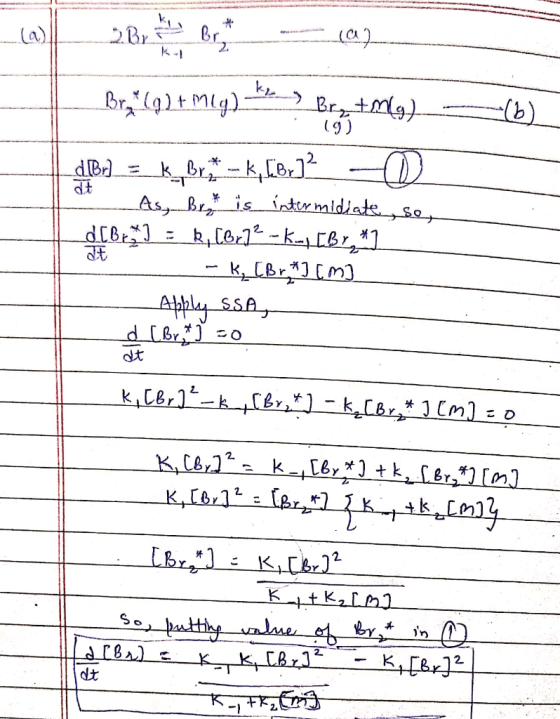 (a) 2Br ⇌ Br₂* — (a)
k₁
k-1
Br₂*(g) + M(g) —k₂→ Br₂ + M(g) — (b)
(g)
d[Br]/dt = k-1 Br₂* - k₁[Br]² — ①
As, Br₂* is intermidiate, so,
d[Br₂*]/dt = k₁[Br]² - k-1[Br₂*]
- k₂[Br₂*][M]
Apply SSA,
d/dt [Br₂*] = 0
k₁[Br]² - k-1[Br₂*] - k₂[Br₂*][M] = 0
k₁[Br]² = k-1[Br₂*] + k₂[Br₂*][M]
k₁[Br]² = [Br₂*] {k-1 + k₂[M]}
[Br₂*] = k₁[Br]² / k-1 + k₂[M]
So, putting value of Br₂* in ①
d[Br]/dt = k-1 k₁[Br]² / k-1 + k₂[M] - k₁[Br]²